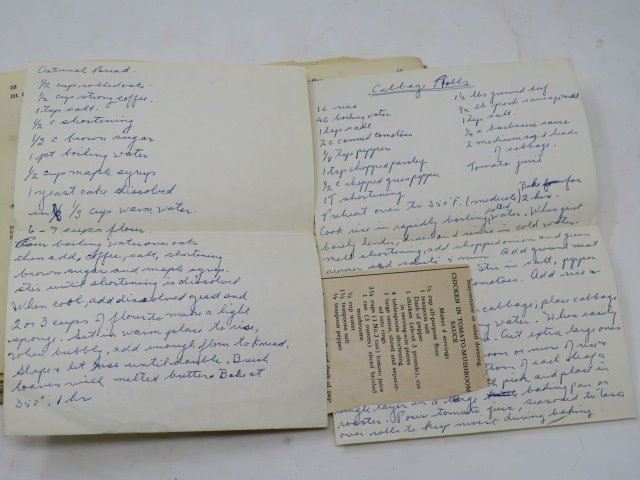 Oatmeal Bread.
1/2 cup rolled oats
1/2 cup strong coffee.
1 tsp salt.
1/2 c shortening
1/3 c brown sugar
1 pt boiling water
1/2 cup maple syrup
1 yeast cake dissolved
in 1/3 cup warm water.
6 - 7 cups flour
Pour boiling water over oats
then add, coffee, salt, shortening
brown sugar and maple syrup.
Stir until shortening is dissolved
When cool, add dissolved yeast and
2 or 3 cups of flour to make a light
sponge. Set in warm place to rise,
when bubbly, add enough flour to knead.
Shape & let rise until double. Brush
loaves with melted butter Bake at
350°, 1 hr
Cabbage Rolls
1 c rice
4c boiling water
1 tsp salt
2 c canned tomatoes
1/8 tsp pepper
1 tsp chopped parsley
1/2 c chopped green pepper
1 T shortening
1 1/2 lbs ground beef
1/2 lb pork sausage meat
1 tsp salt.
1/4 c barbecue sauce
2 medium sized heads
of cabbage.
Tomato juice
Preheat oven to 350°F. (moderate) Bake for 2 hrs.
Cook rice in rapidly boiling salted water. When just
barely tender, drain and rinse in cold water.
Melt shortening, add chopped onion and green
pepper and sauté 5 min. Add ground meat
Stir in salt, pepper
tomatoes. Add rice &
cabbage; place cabbage
water. When easily
Cut extra large ones
spoon or more of meat
of each leaf &
pick and place in
single layer in a large baking pan or
roaster. Pour tomato juice, seasoned to taste
over rolls to keep moist during baking.
CHICKEN IN TOMATO-MUSHROOM
SAUCE
Makes 4 servings
1/4 cup all-purpose flour
1 teaspoon salt
Dash of pepper
1 chicken (about 3 pounds), cut
in serving pieces
4 tablespoons shortening
1 large onion, sliced and separated
into rings
2 1/4 cups (1 No. 2 can) tomato juice
1 can (3 ounces) sliced broiled
mushrooms
1/4 cup water
1 1/2 teaspoons salt
1/4 teaspoon pepper